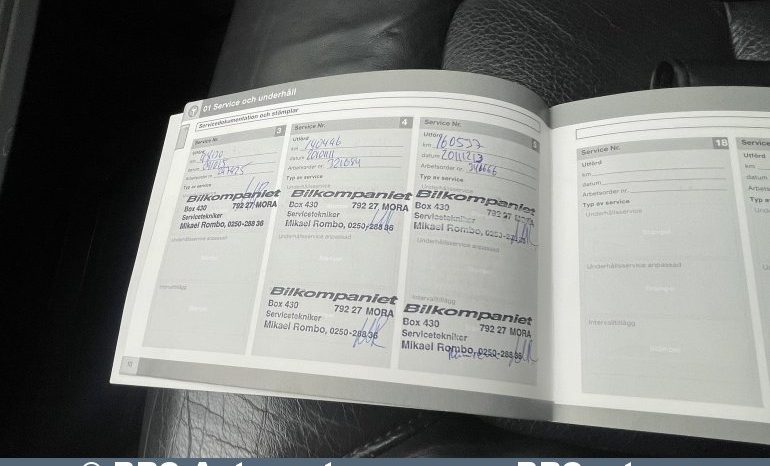 01 Service och underhåll
Servicedokumentation och stämplar
Service Nr. 3
Utförd
km
datum
Arbetsorder nr.
Typ av service
Bilkompaniet
Box 430 792 27 MORA
Servicetekniker
Mikael Rombo, 0250-288 36
Underhållsservice anpassad
Intervalltillägg
Service Nr. 4
Utförd
km 140446
datum
Arbetsorder nr.
Typ av service
Underhållsservice
Bilkompaniet
Box 430 792 27 MORA
Servicetekniker
Mikael Rombo, 0250-288 36
Underhållsservice anpassad
Bilkompaniet
Box 430 792 27 MORA
Servicetekniker
Mikael Rombo, 0250-288 36
Service Nr. 5
Utförd
km 160537
datum 20111213
Arbetsorder nr.
Typ av service
Underhållsservice
Bilkompaniet
Box 430 792 27 MORA
Servicetekniker
Mikael Rombo,
Underhållsservice anpassad
Intervalltillägg
Bilkompaniet
Box 430 792 27 MORA
Servicetekniker
Mikael Rombo, 0250-288 36
10
Service Nr. 18
Utförd
km
datum
Arbetsorder nr.
Typ av service
Underhållsservice
Stämpel
Underhållsservice anpassad
Stämpel
Intervalltillägg
Stämpel
Service
Utförd
km
datum
Arbetso
Typ av